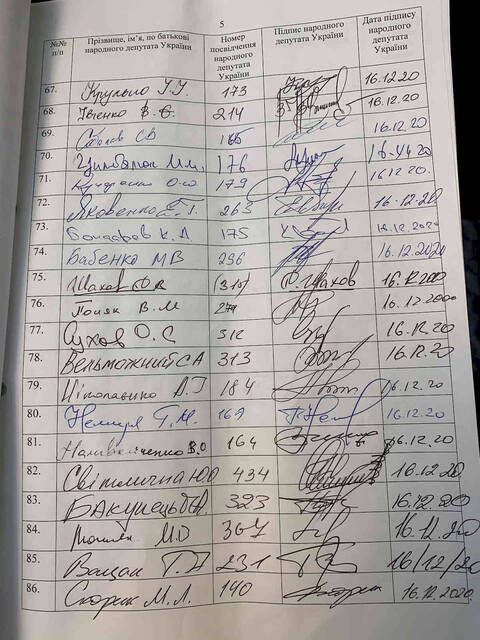 5
№№ п/п Прізвище, ім’я, по батькові народного депутата України Номер посвідчення народного депутата України Підпис народного депутата України Дата підпису народного депутата України
67. Крулько І.І. 173 16.12.20
68. Івченко В.Є. 214 16.12.20
69. Соболєв СВ 16.12.20
70. Цимбалюк М.М. 176
71. Кучеренко О.Ю 179 16.12.20
72. Яковенко Є.Г. 263 16.12.20
73. Бондарєв К.А 175 16.12.2020
74. Бабенко МВ 296 16.12.2020
75. Шахов С.В (315) Шахов 16.12.2020
76. Поляк В.М 16.12.2020
77. Сухов О.С 312 16.12.20
78. Вельможний СА 313 16.12.20
79. Ніколаєнко А.І 184 16.12.20
80. Немиря Г.М. 169 16.12.20
81. Наливайченко В.О 164 16.12.20
82. Світлична ЮО 434 16.12.20
83. БАКУНЕЦЬ ПА 323 16.12.20
84. М.О 367 16.12.20
85. Вацак Г.А 231 16/12/20
86. Скорик М.Л. 140 16.12.2020